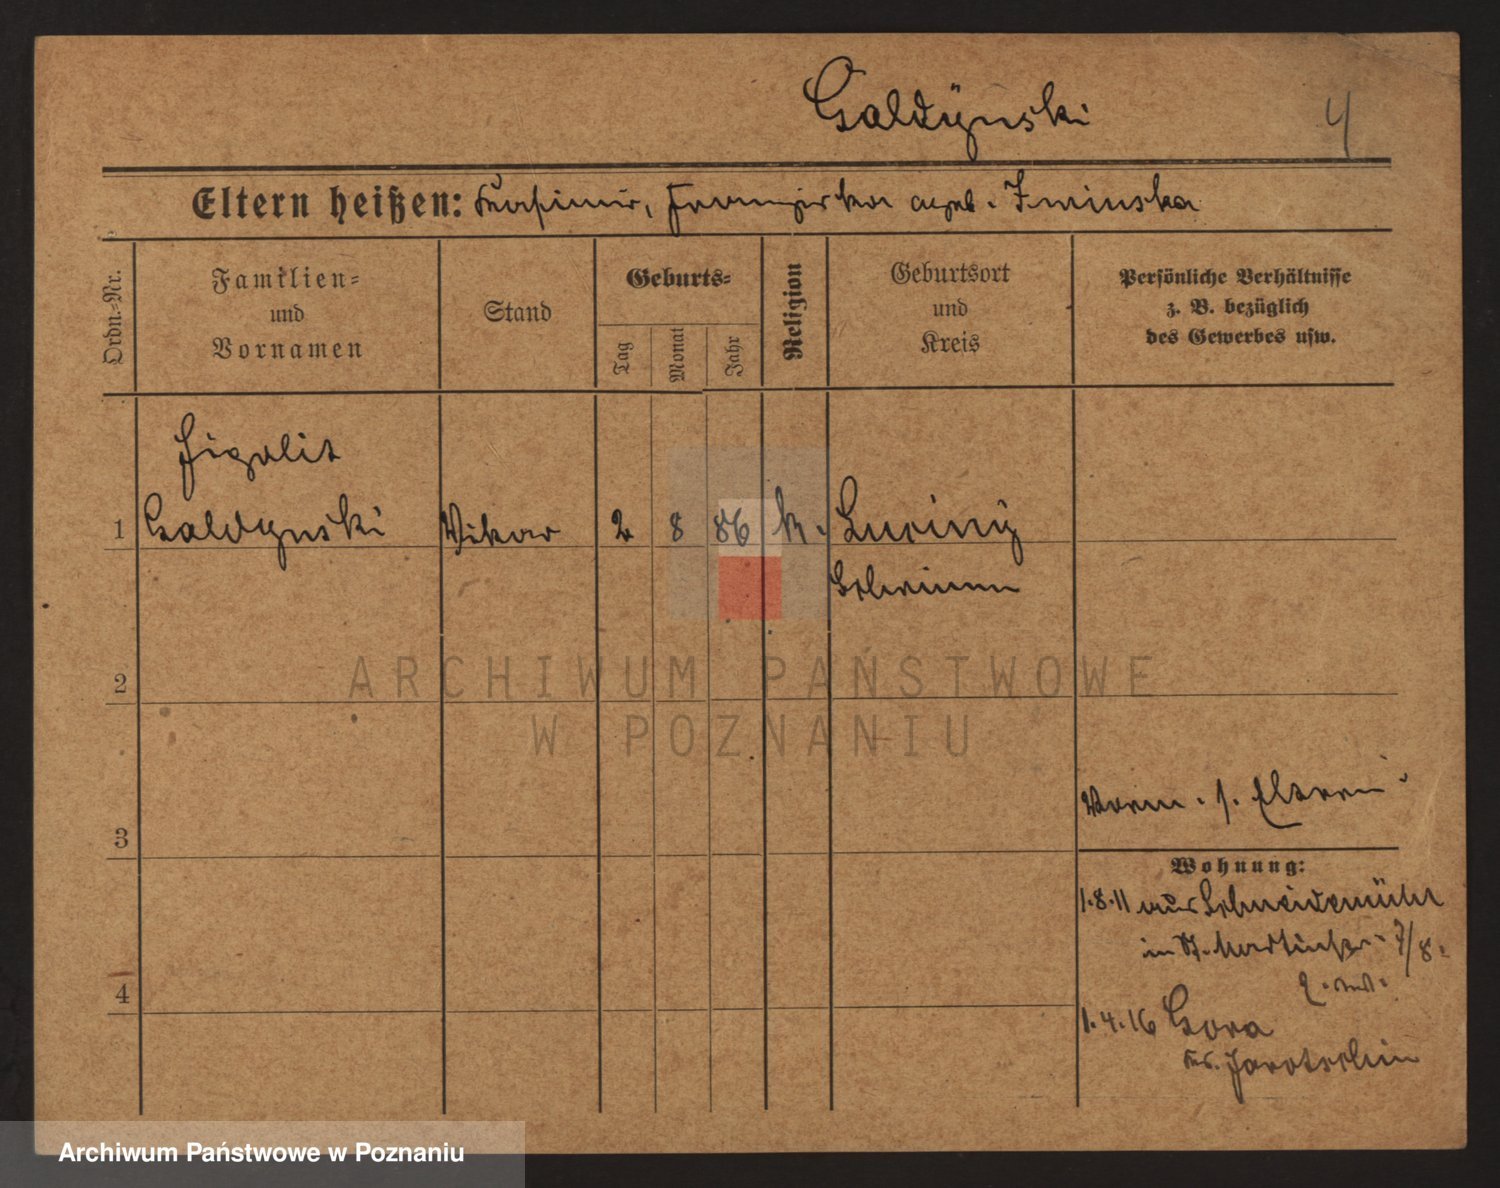 Galdÿnski
4
Eltern heißen: Kasimir, Franziska geb. Zminska
Ordn.-Nr.
Familien-
und
Vornamen
Stand
Geburts-
Tag
Monat
Jahr
Religion
Geburtsort
und
Kreis
Persönliche Verhältnisse
z. B. bezüglich
des Gewerbes usw.
1
Galdynski Vikar 2 8 86 k.
Schrimm
2
3
Verm. s. Eltern
Wohnung:
1.8.11 aus Schneidemühl
in St. Martinstr. 7/8
4
1.4.16 Gora
Kr. Jarotschin
ARCHIWUM PAŃSTWOWE
W POZNANIU
Archiwum Państwowe w Poznaniu